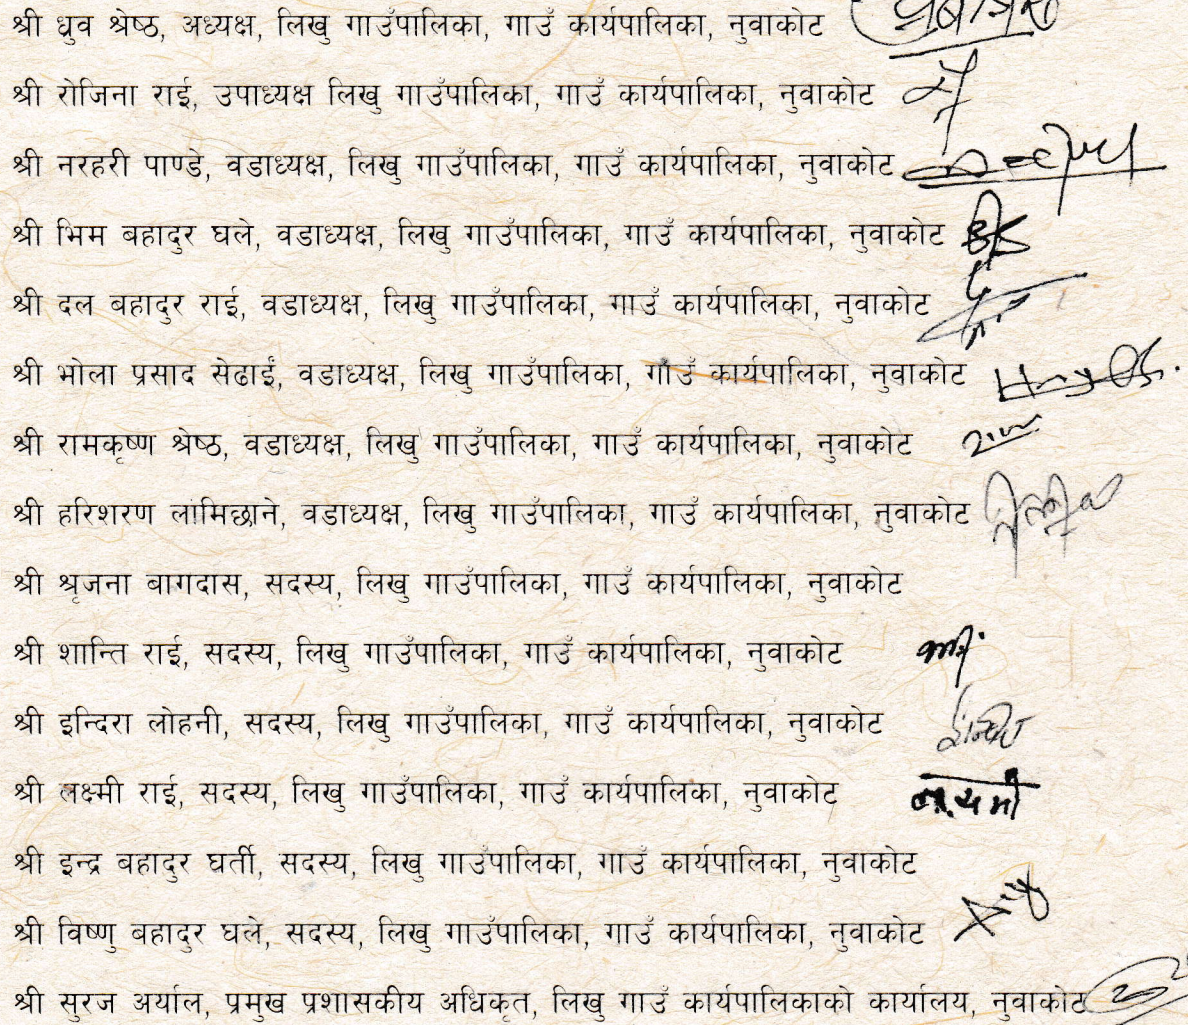 श्री ध्रुव श्रेष्ठ, अध्यक्ष, लिखु गाउँपालिका, गाउँ कार्यपालिका, नुवाकोट
श्री रोजिना राई, उपाध्यक्ष लिखु गाउँपालिका, गाउँ कार्यपालिका, नुवाकोट
श्री नरहरी पाण्डे, वडाध्यक्ष, लिखु गाउँपालिका, गाउँ कार्यपालिका, नुवाकोट
श्री भिम बहादुर घले, वडाध्यक्ष, लिखु गाउँपालिका, गाउँ कार्यपालिका, नुवाकोट
श्री दल बहादुर राई, वडाध्यक्ष, लिखु गाउँपालिका, गाउँ कार्यपालिका, नुवाकोट
श्री भोला प्रसाद सेढाईं, वडाध्यक्ष, लिखु गाउँपालिका, गाउँ कार्यपालिका, नुवाकोट
श्री रामकृष्ण श्रेष्ठ, वडाध्यक्ष, लिखु गाउँपालिका, गाउँ कार्यपालिका, नुवाकोट
श्री हरिशरण लामिछाने, वडाध्यक्ष, लिखु गाउँपालिका, गाउँ कार्यपालिका, नुवाकोट
श्री श्रृजना बागदास, सदस्य, लिखु गाउँपालिका, गाउँ कार्यपालिका, नुवाकोट
श्री शान्ति राई, सदस्य, लिखु गाउँपालिका, गाउँ कार्यपालिका, नुवाकोट
श्री इन्दिरा लोहनी, सदस्य, लिखु गाउँपालिका, गाउँ कार्यपालिका, नुवाकोट
श्री लक्ष्मी राई, सदस्य, लिखु गाउँपालिका, गाउँ कार्यपालिका, नुवाकोट
श्री इन्द्र बहादुर घर्ती, सदस्य, लिखु गाउँपालिका, गाउँ कार्यपालिका, नुवाकोट
श्री विष्णु बहादुर घले, सदस्य, लिखु गाउँपालिका, गाउँ कार्यपालिका, नुवाकोट
श्री सुरज अर्याल, प्रमुख प्रशासकीय अधिकृत, लिखु गाउँ कार्यपालिकाको कार्यालय, नुवाकोट